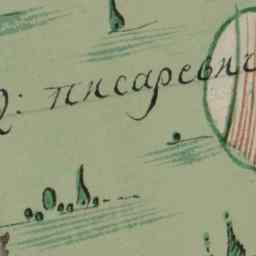 Д: писаревич